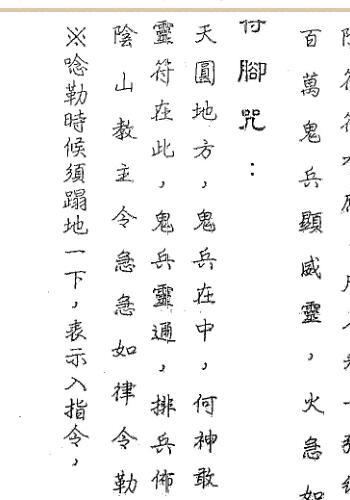 百萬鬼兵顯威靈，火急如
符腳咒：
天圓地方，鬼兵在中，何神敢
靈符在此，鬼兵靈通，排兵佈
陰山教主令急急如律令勒
※唸勒時候須蹋地一下，表示入指令，